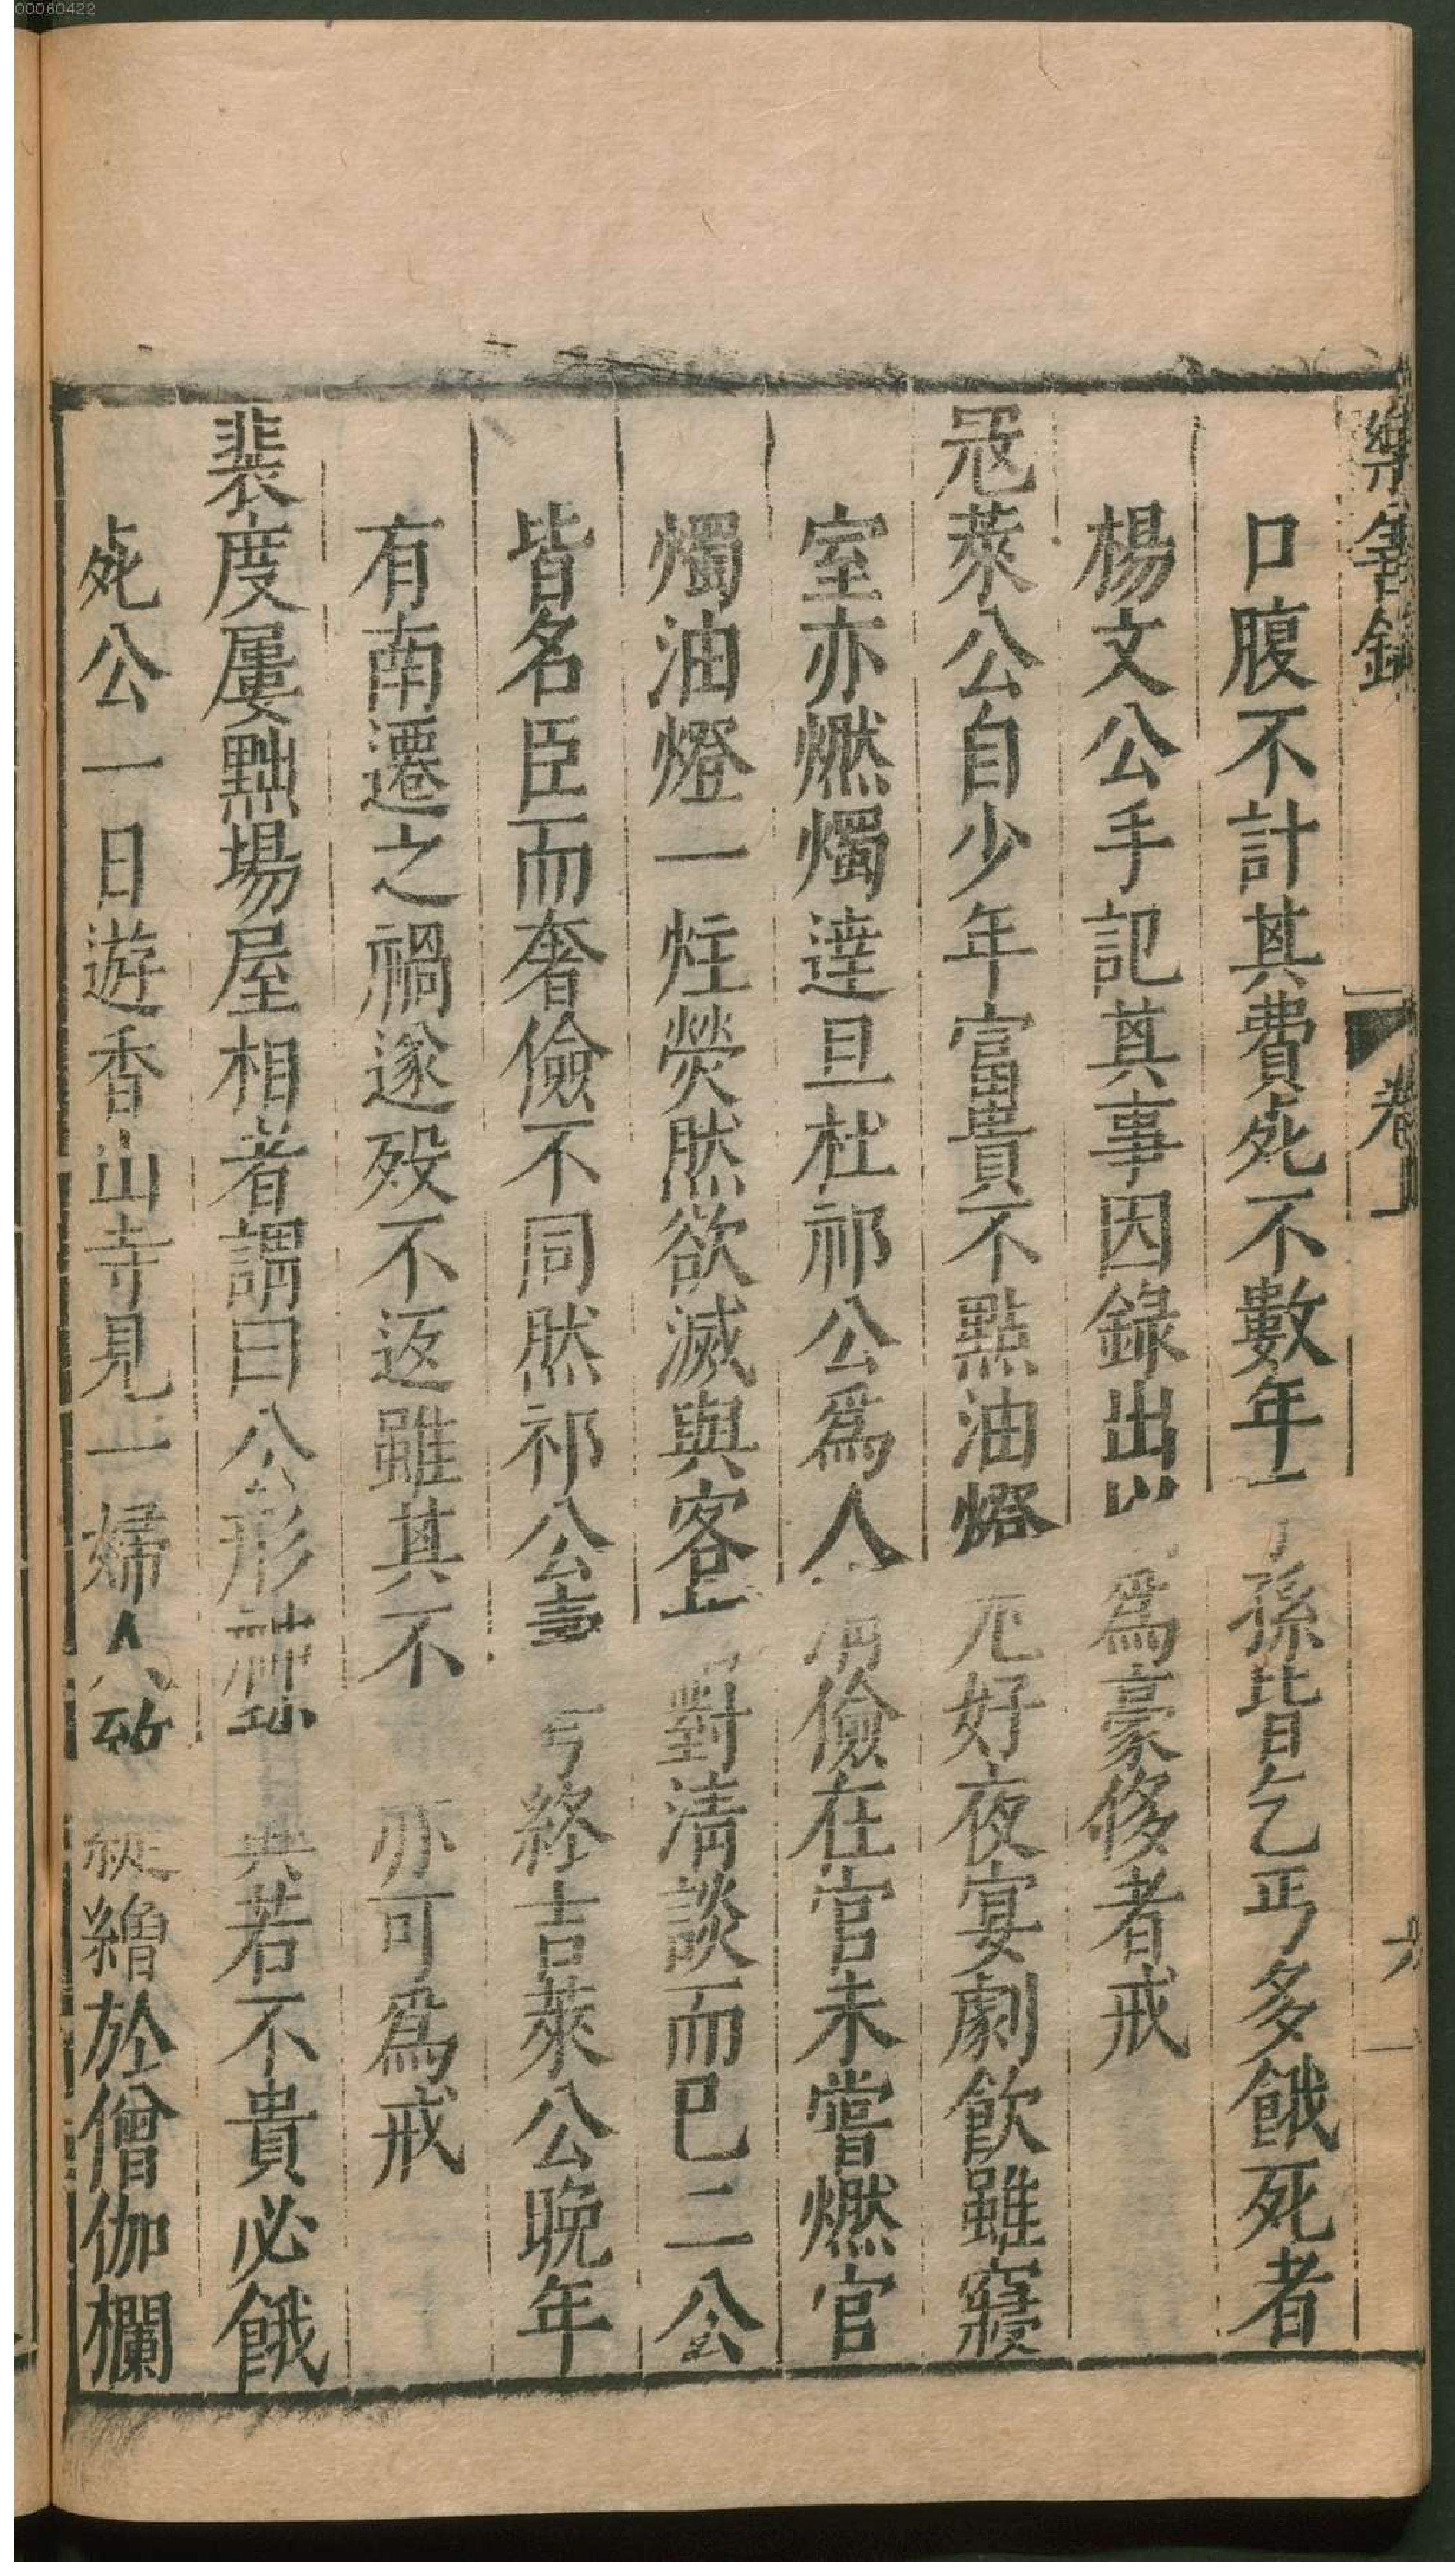 00060422
樂善録 卷上 六
口腹不計其費死不數年子孫皆乞丐多餓死者
楊文公手記其事因錄出以爲豪侈者戒
冦萊公自少年富貴不點油燈尤好夜宴劇飲雖寢
室亦燃燭達旦杜祁公爲人清儉在官未嘗燃官
燭油燈一炷熒然欲滅與客相對清談而已二公
皆名臣而奢儉不同然祁公壽考終吉萊公晚年
有南遷之禍遂歿不返雖其不 亦可爲戒
裴度屢黜場屋相者謂曰公形神 若不貴必餓
死公一日遊香山寺見一婦人致緹繒於僧伽欄